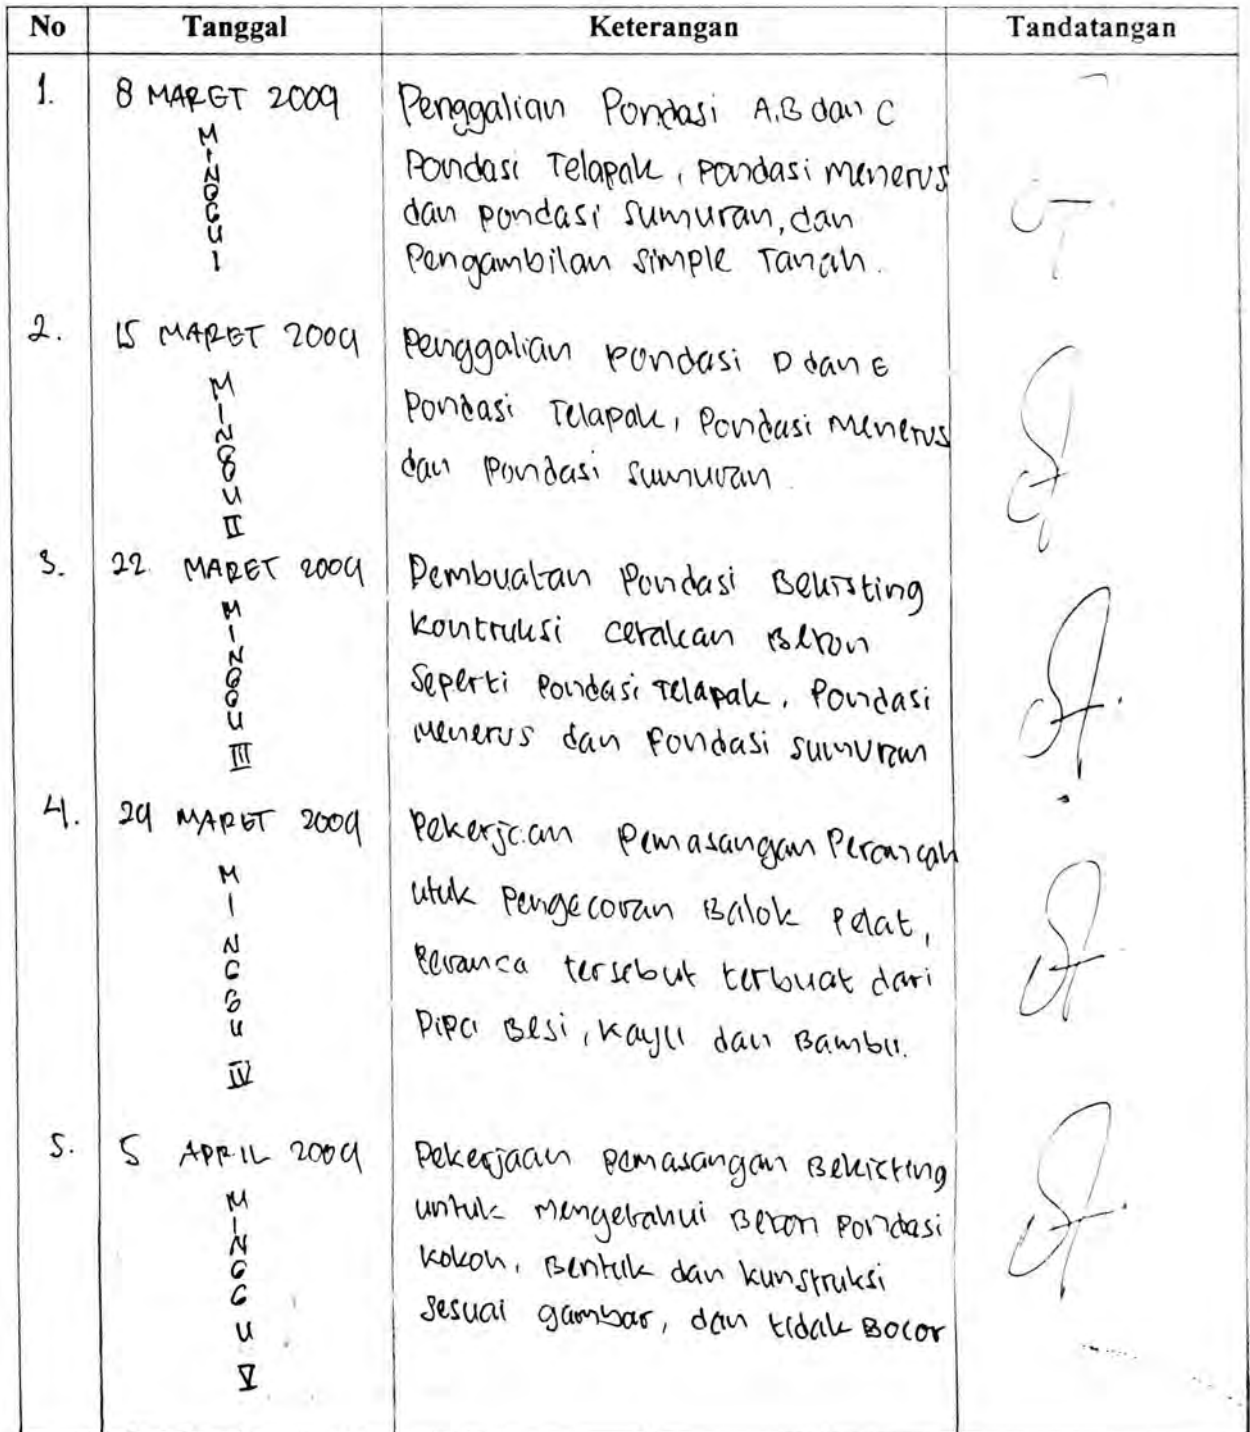 No Tanggal Keterangan Tandatangan
1. 8 MARET 2009 Penggalian Pondasi A.B dan C
MINGGU I
Pondasi Telapak, pondasi menerus
dan pondasi sumuran, dan
Pengambilan simple Tanah.
2. 15 MARET 2009 Penggalian pondasi D dan E
MINGGU II
Pondasi Telapak, Pondasi menerus
dan pondasi sumuran.
3. 22 MARET 2009 Pembuatan Pondasi Bekisting
MINGGU III
kontruksi cetakan Beton
Seperti Pondasi Telapak, Pondasi
Menerus dan Pondasi sumuran
4. 29 MARET 2009 Pekerjaan Pemasangan Perancah
MINGGU IV
utuk Pengecoran Balok Pelat,
Peranca tersebut terbuat dari
Pipa Besi, kayu dan Bambu.
5. 5 APRIL 2009 Pekerjaan pemasangan Bekisting
MINGGU V
untuk mengetahui Beton pondasi
kokoh, Bentuk dan kunstruksi
sesuai gambar, dan tidak Bocor